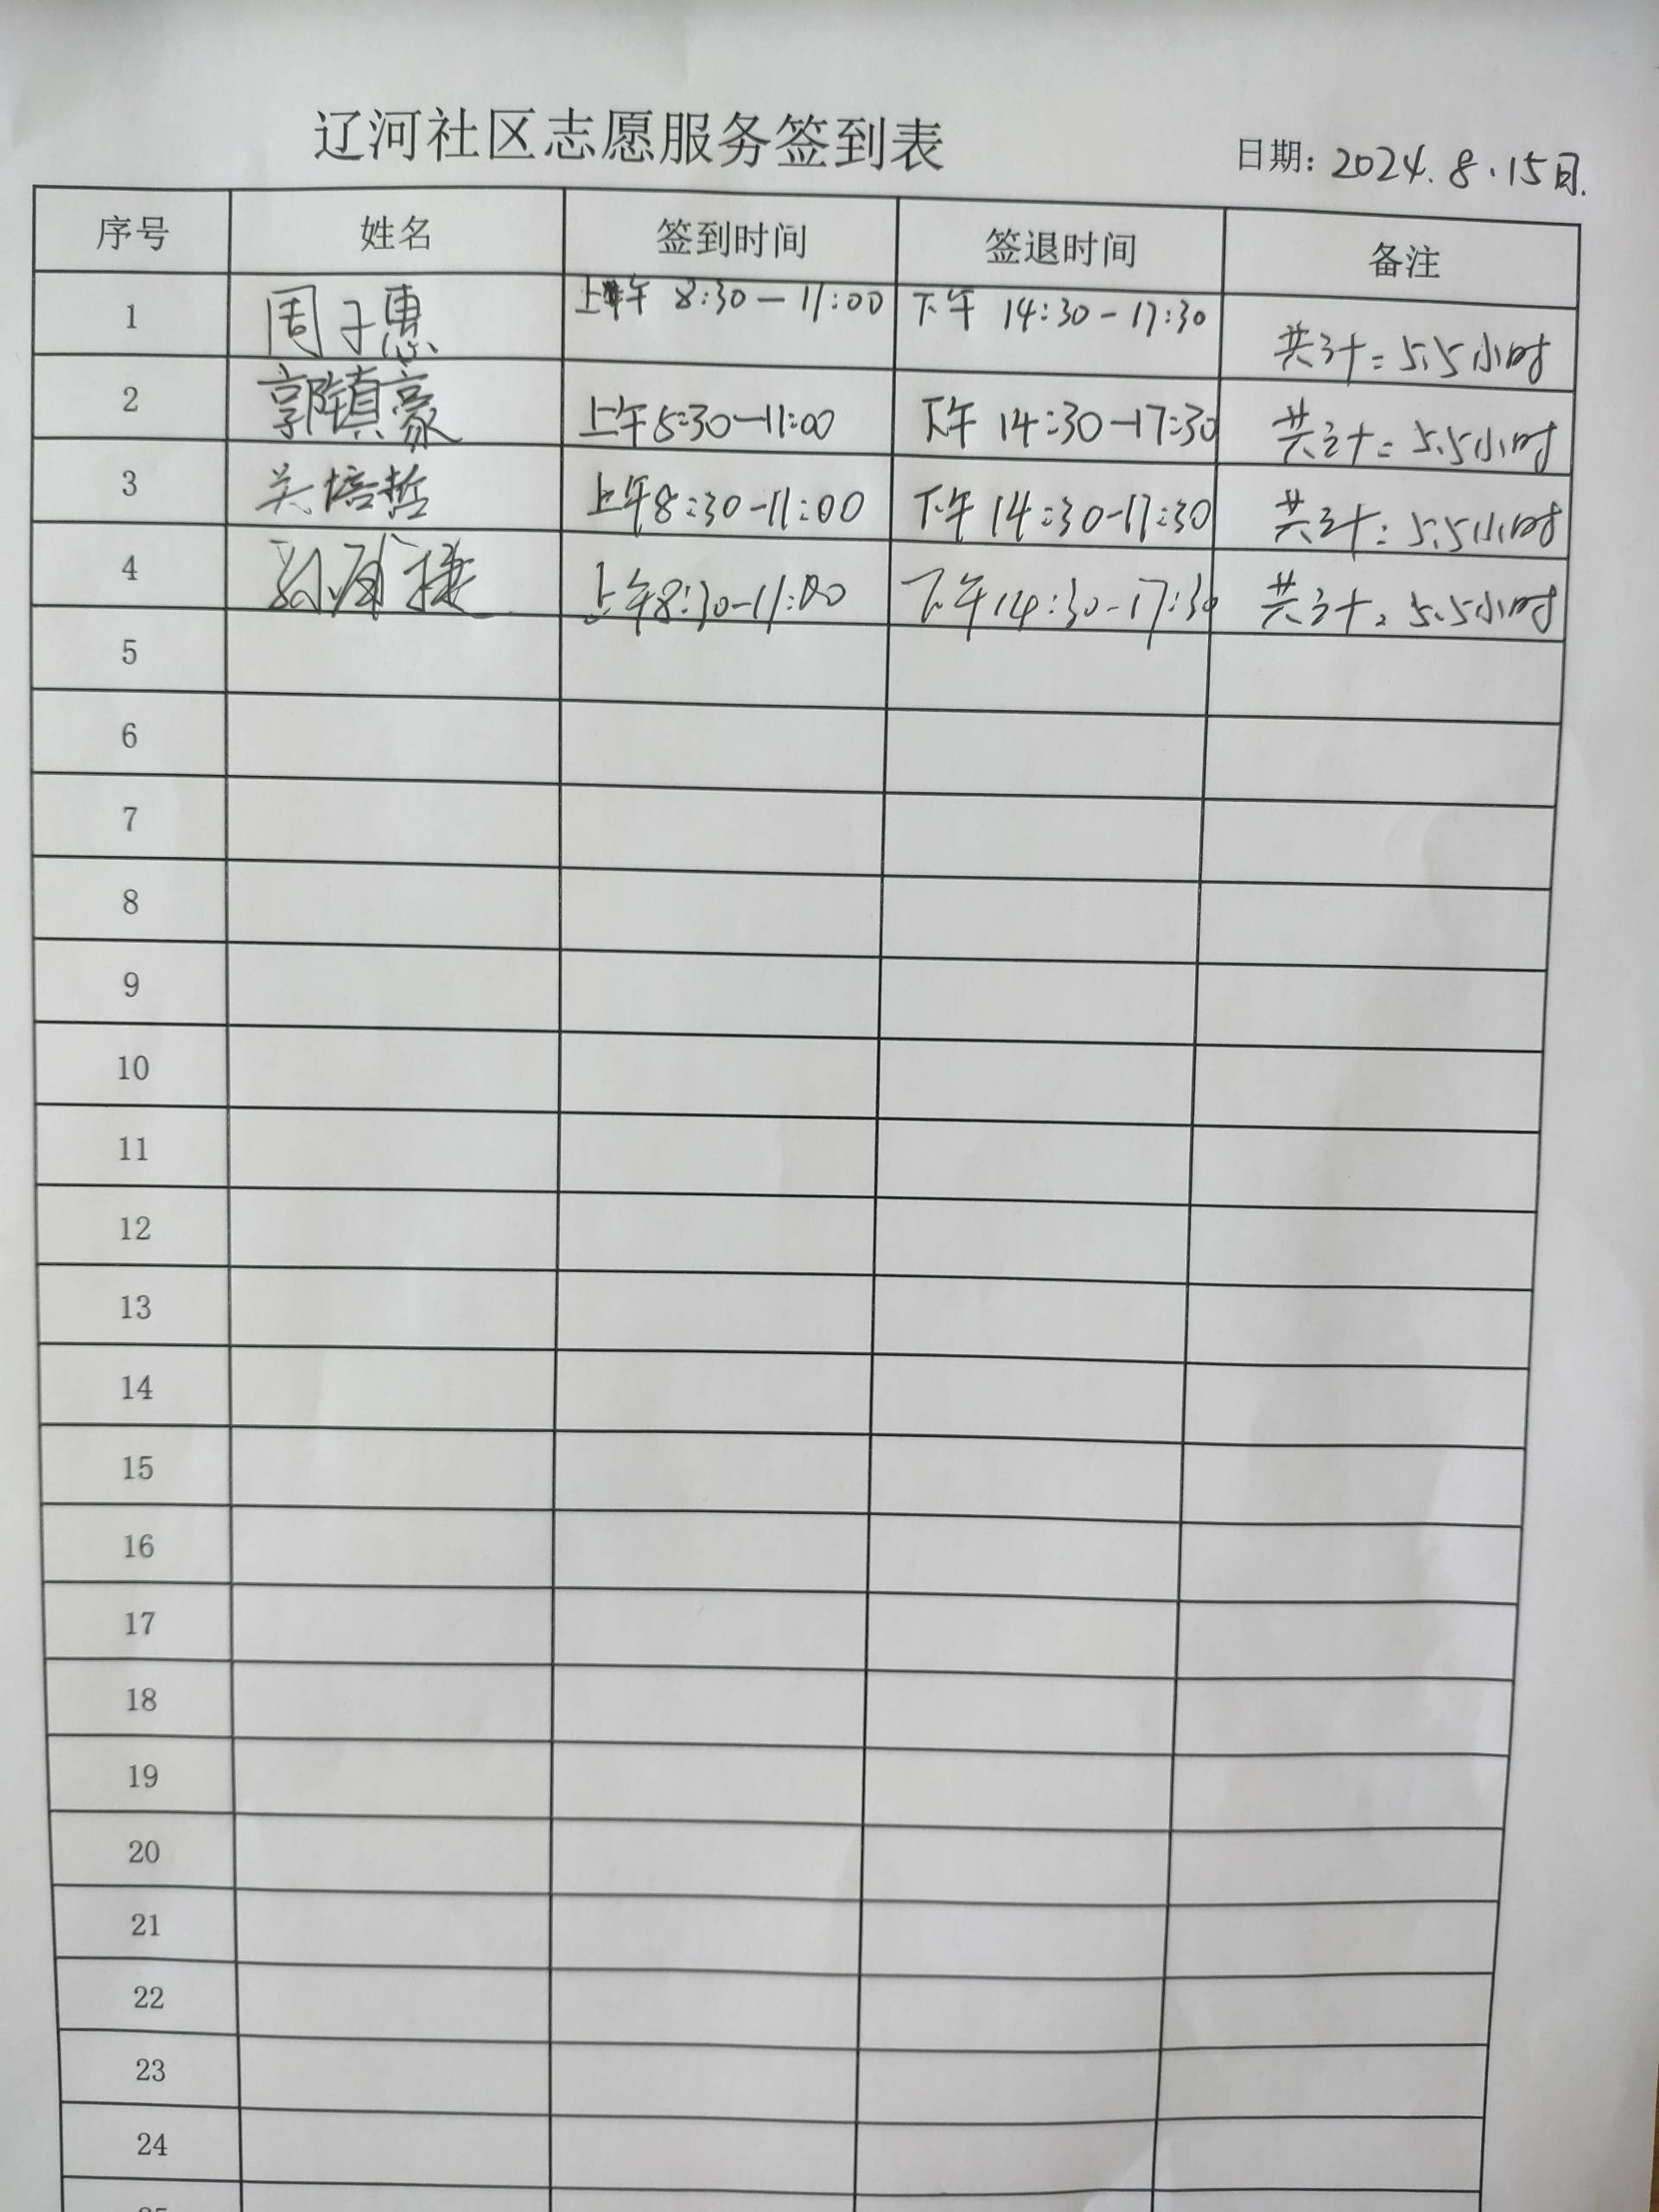 辽河社区志愿服务签到表
日期: 2024.8.15日.
序号 姓名 签到时间 签退时间 备注
1 周子惠 上午 8:30-11:00 下午 14:30-17:30 共计=5.5小时
2 郭镇豪 上午8:30-11:00 下午 14:30-17:30 共计=5.5小时
3 关培哲 上午8:30-11:00 下午 14:30-17:30 共计:5.5小时
4 上午8:30-11:00 下午14:30-17:30 共计:5.5小时
5
6
7
8
9
10
11
12
13
14
15
16
17
18
19
20
21
22
23
24